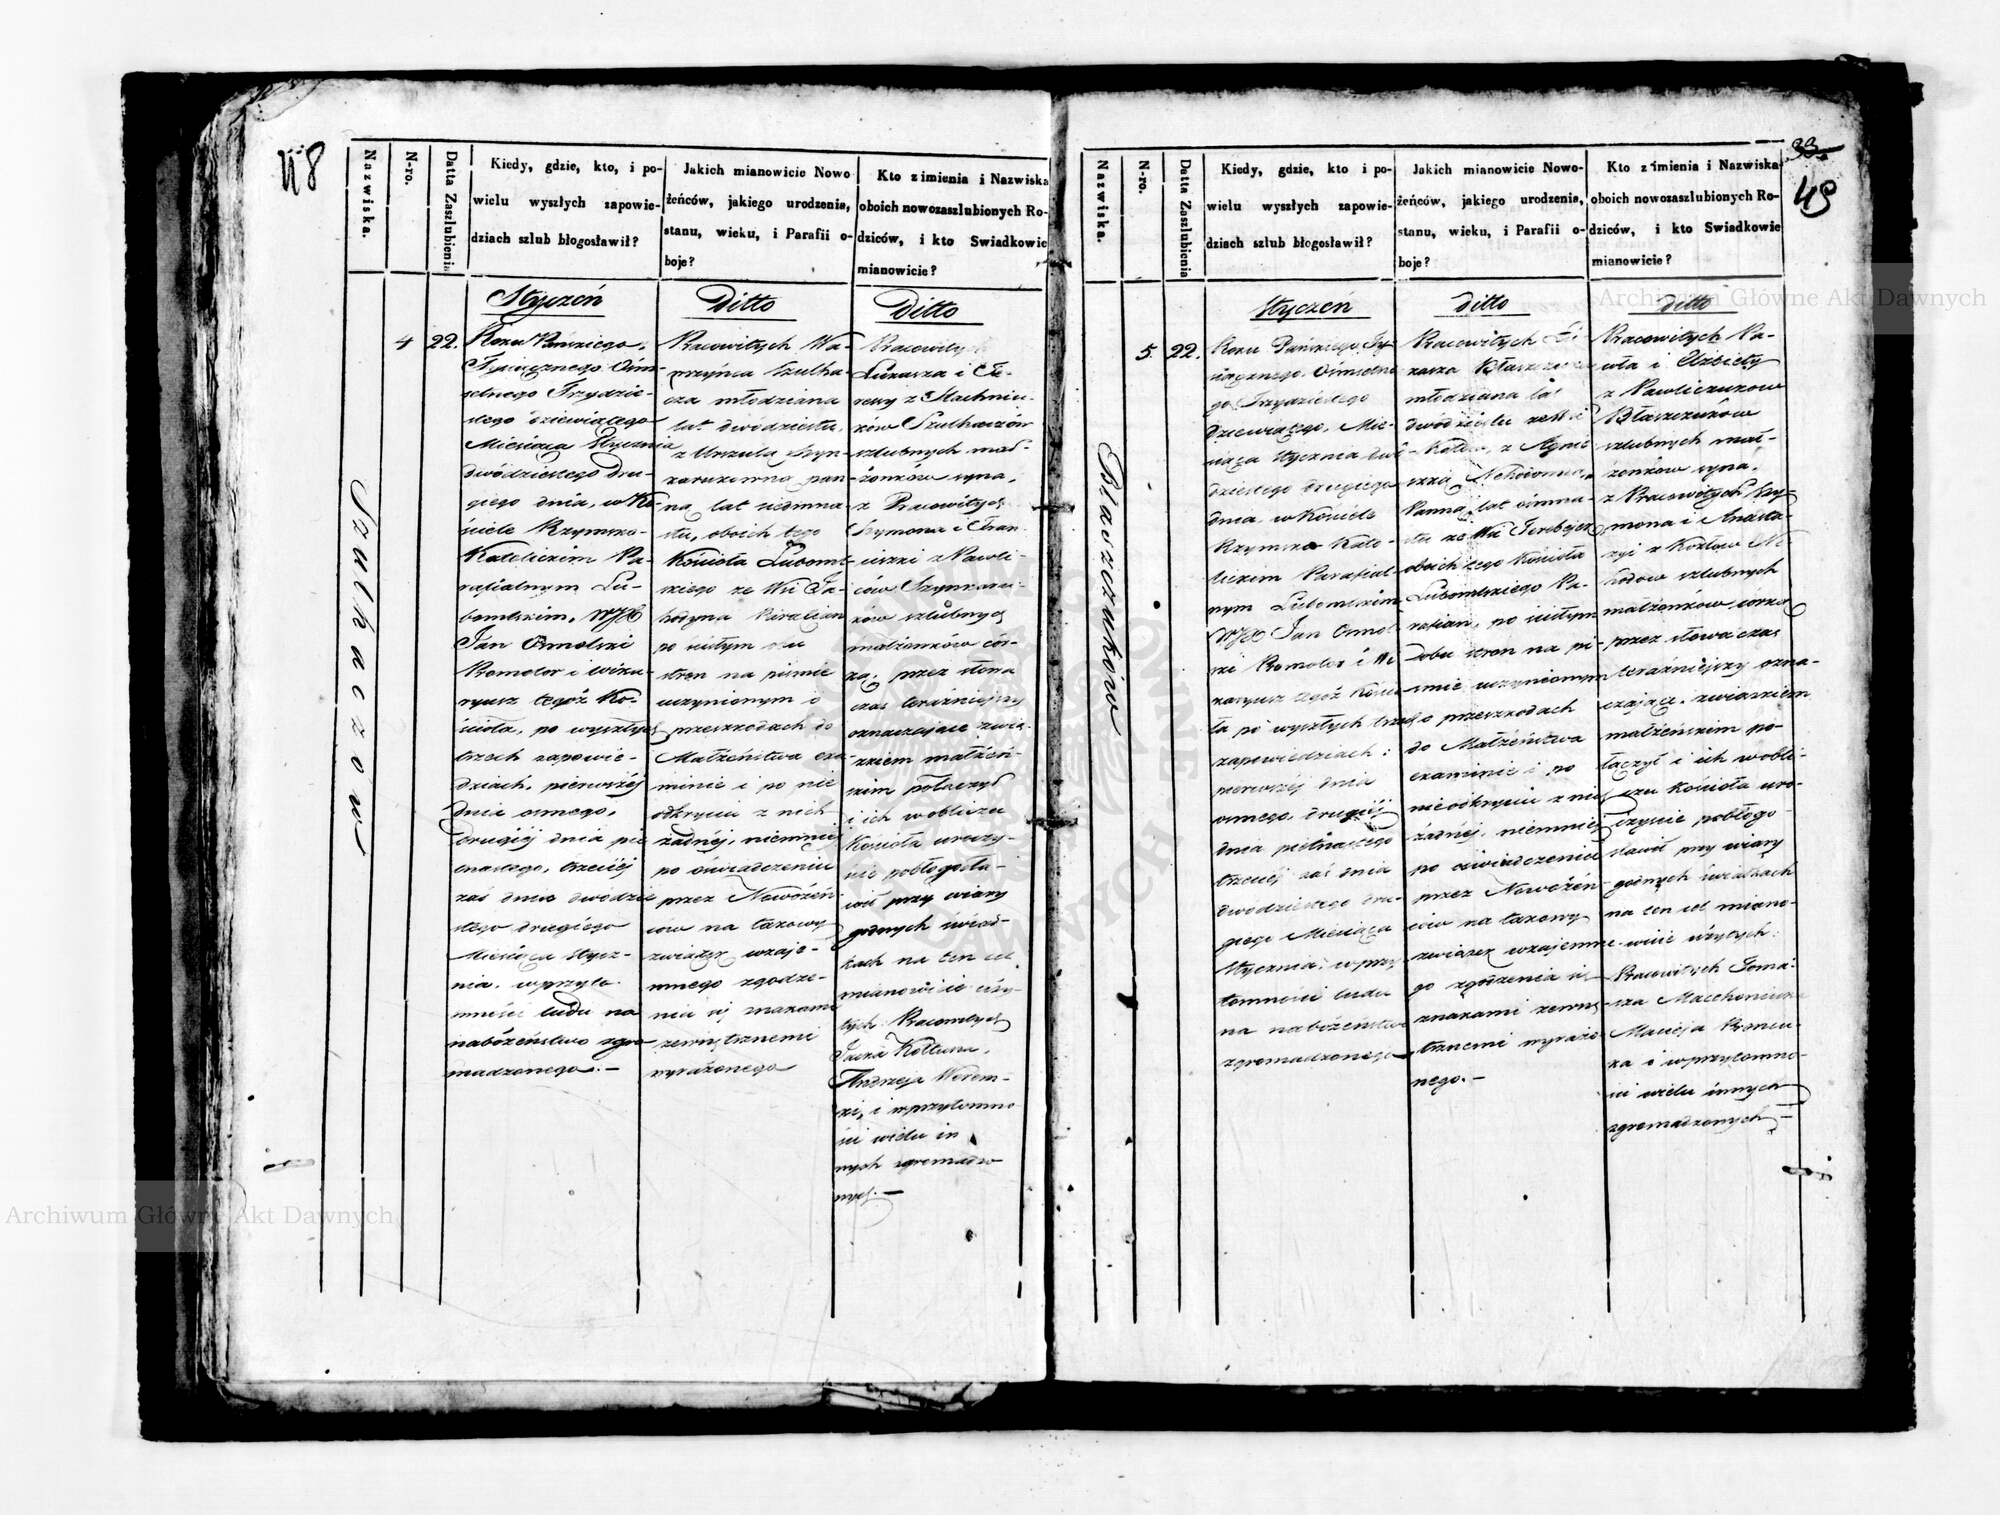 48
Nazwiska.
N-ro.
Datta Zaszlubienia
Kiedy, gdzie, kto, i po-
wielu wyszłych zapowie-
dziach szlub błogosławił?
Jakich mianowicie Nowo
żeńców, jakiego urodzenia,
stanu, wieku, i Parafii o-
boje?
Kto z imienia i Nazwiska
oboich nowozaszlubionych Ro-
dziców, i kto Swiadkowie
mianowicie?
Szulhaczow
4
22.
Styczeń
Roku Pańskiego,
Tysiącznego Ośm-
setnego Trzydzie-
stego dziewiątego
Miesiąca Stycznia
dwódziestego dru-
giego dnia, w Ko-
ściele Rzymsko-
Katolickim Pa-
rafialnym Lu-
bomlskim, WJX
Jan Osmolski
Promotor i Wika-
ryusz tegóż Ko-
ścioła, po wyszłych
trzech zapowie-
dziach, pierwszéj
dnia osmego,
drugiéj dnia pię
tnastego, trzeciéj
zaś dnia dwódzie
stego drugiego
Miesiąca Stycz-
nia, w przyto-
mności ludu na
nabóżeństwo zgro
madzonego.-
Ditto
Pracowitych Wa-
wrzyńca Szulha-
cza młodziana
lat dwódziestu,
z Urszulą Szyn-
karukowną pan-
ną lat siedmna
stu, oboich tego
Kościoła Luboml-
skiego ze Wsi Ja-
hodyna Parafian
po ścisłym obu
stron na piśmie
uczynionym o
przeszkodach do
Małżeństwa exa
minie i po nie
odkryciu z nich
żadnéj, niemniéj
po oświadczeniu
przez Nowożeń
ców na takowy
związek wzaje-
mnego zgodze-
nia się znakami
zewnętrznemi
wyrażonego
Ditto
Pracowitych
Łukasza i Te-
resy z Stachniu-
ków Szulhaczów
szlubnych mał-
żonków syna,
z Pracowitych
Szymona i Fran-
ciszki z Pawli-
ców Szynkaru-
ków szlubnych
małżonków cór-
ką, przez słowa
czas teraźniejszy
oznaczające zwią-
zkiem małżeń-
skim połączył
i ich w obliczu
Kościoła uroczy-
ście pobłogosła-
wił przy wiary
godnych świad-
kach na ten cel
mianowicie uży-
tych: Pracowitych
Jacka Kołtuna,
Andrzeja Werem-
ki, i w przytomno
ści wielu in
nych zgromadzo
nych.-
33.
49
Nazwiska.
N-ro.
Datta Zaszlubienia
Kiedy, gdzie, kto i po-
wielu wyszłych zapowie-
dziach szlub błogosławił?
Jakich mianowicie Nowo-
żeńców, jakiego urodzenia,
stanu, wieku, i Parafii o-
boje?
Kto z imienia i Nazwiska
oboich nowozaszlubionych Ro-
dziców, i kto Swiadkowie
mianowicie?
Błaszczuków
5
22.
Styczeń
Roku Pańskiego, Ty-
siącznego, Ośmsetne
go Trzydziestego
Dziewiątego, Mie-
siąca Stycznia dwó
dziestego drugiego
dnia w Kościele
Rzymsko Kato-
lickim Parafial-
nym Lubomlskim
WJX Jan Osmol
ski Promotor i Wi
karyusz tegóż Kości
ła po wyszłych trzech
zapowiedziach:
pierwszéj dnia
osmego, drugiéj
dnia piętnastego
trzeciéj zaś dnia
dwódziestego dru-
giego Miesiąca
Stycznia, w przy
tomności ludu
na nabóżeństwo
zgromadzonego
ditto
Pracowitych
Błaszczuka
młodziana lat
dwódziestu
z Agnie
szką
Panną lat ośmna-
stu ze Wsi Terebejek
oboich tego Kościoła
Lubomlskiego Pa-
rafian, po ścisłym
obu stron na pi-
śmie uczynionym
o przeszkodach
do Małżeństwa
examinie i po
nieodkryciu z nich
żadnéj, niemniéj
po oświadczeniu
przez Nowożeń
ców na takowy
związek wzajemne
go zgodzenia się
znakami zewnę
trznemi wyrażo-
nego.-
ditto
Pracowitych Pa-
wła i Elżbiety
z Pawliczuków
Błaszczuków
szlubnych mał-
żonków syna,
z Pracowitych Szy-
mona i Anasta-
zyi z Kozłow
szlubnych
małżonków, córką
przez słowa czas
teraźniejszy ozna-
czające, związkiem
małżeńskim po-
łączył i ich w obli-
czu Kościoła uro-
czyście pobłogo-
sławił przy wiary
godnych świadkach
na ten cel miano-
wicie użytych:
Pracowitych Toma-
sza
Macieja
ka i w przytomno-
ści wielu innych
zgromadzonych.-
Archiwum Główne Akt Dawnych
Archiwum Główne Akt Dawnych